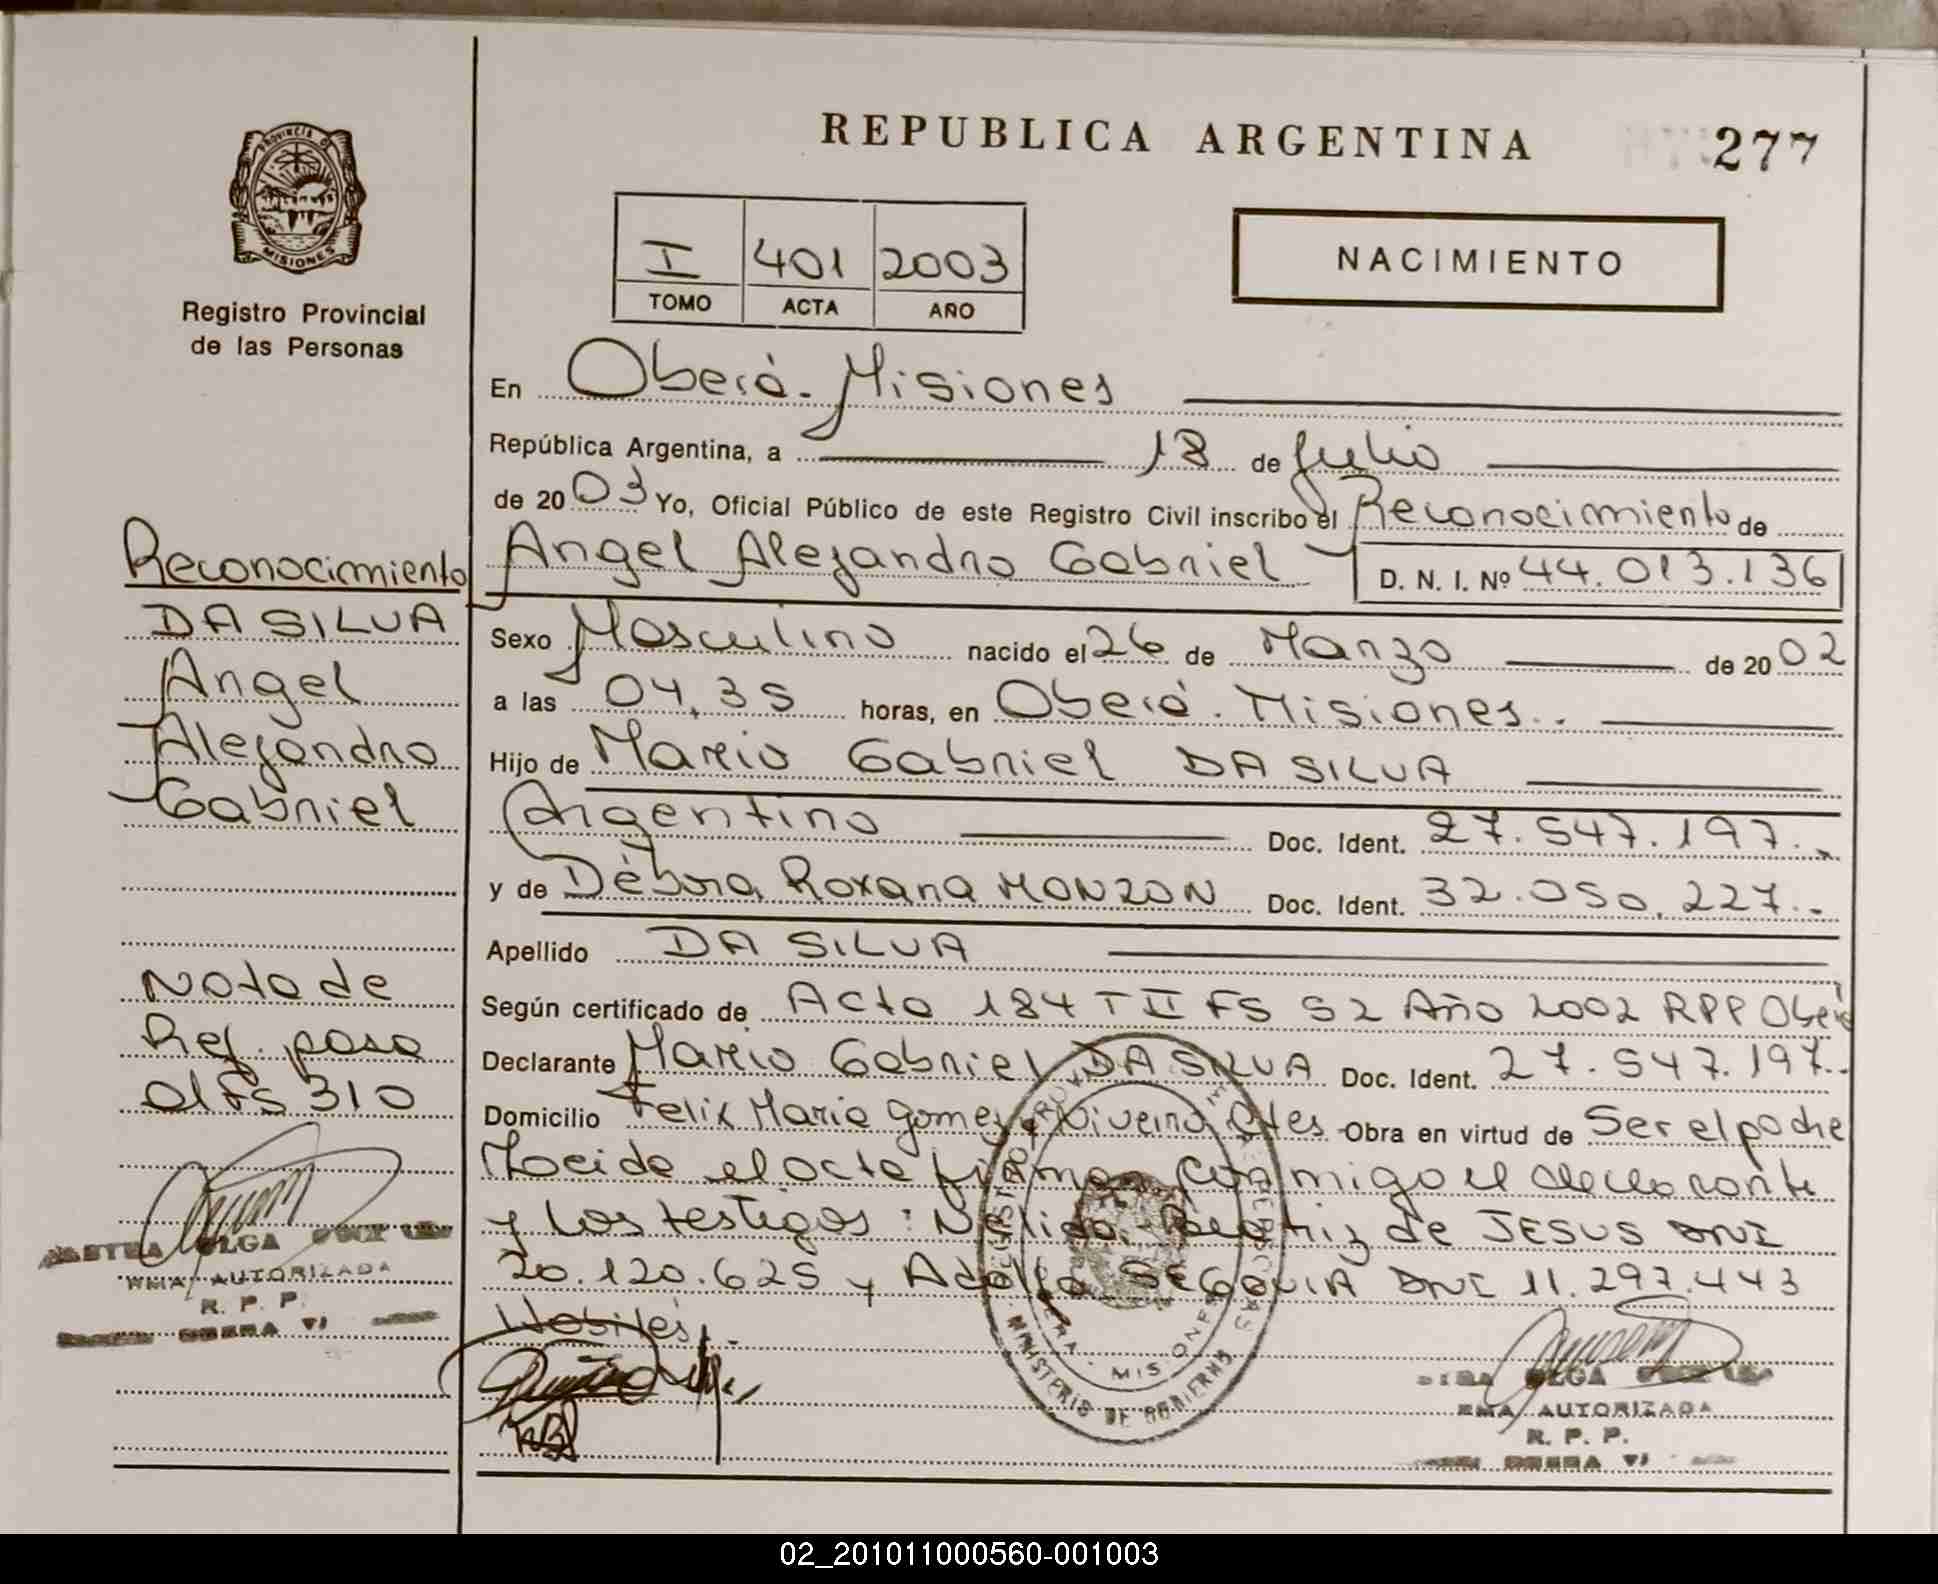 REPUBLICA ARGENTINA
277
PROVINCIA DE
MISIONES
Registro Provincial
de las Personas
I 401 2003
TOMO ACTA AÑO
NACIMIENTO
En Oberá - Misiones
República Argentina, a 18 de Julio
de 2003 Yo, Oficial Público de este Registro Civil inscribo el Reconocimiento de
Angel Alejandro Gabriel D. N. I. Nº 44.013.136
Sexo Masculino nacido el 26 de Marzo de 2002
a las 04,35 horas, en Oberá. Misiones..
Hijo de Mario Gabriel DA SILVA
Argentino Doc. Ident. 27.547.197.-
y de Débora Roxana MONZON Doc. Ident. 32.050.227.-
Apellido DA SILVA
Según certificado de Acta 184 T II FS 52 Año 2002 RPP Oberá
Declarante Mario Gabriel DA SILVA Doc. Ident. 27.547.197.-
Domicilio Felix Maria Gomez y Obra en virtud de Ser el padre
el acta firman conmigo el declarante
y los testigos: Nélida Beatriz de JESUS DNI
20.120.625 y Adolfo SEGOVIA DNI 11.297.443
Reconocimiento
DA SILVA
Angel
Alejandro
Gabriel
Nota de
Ref. pasa
al Fs 310
OLGA
AUTORIZADA
R. P. P.
OBERA
MINISTERIO DE GOBIERNO
OLGA
AUTORIZADA
R. P. P.
OBERA
02_201011000560-001003